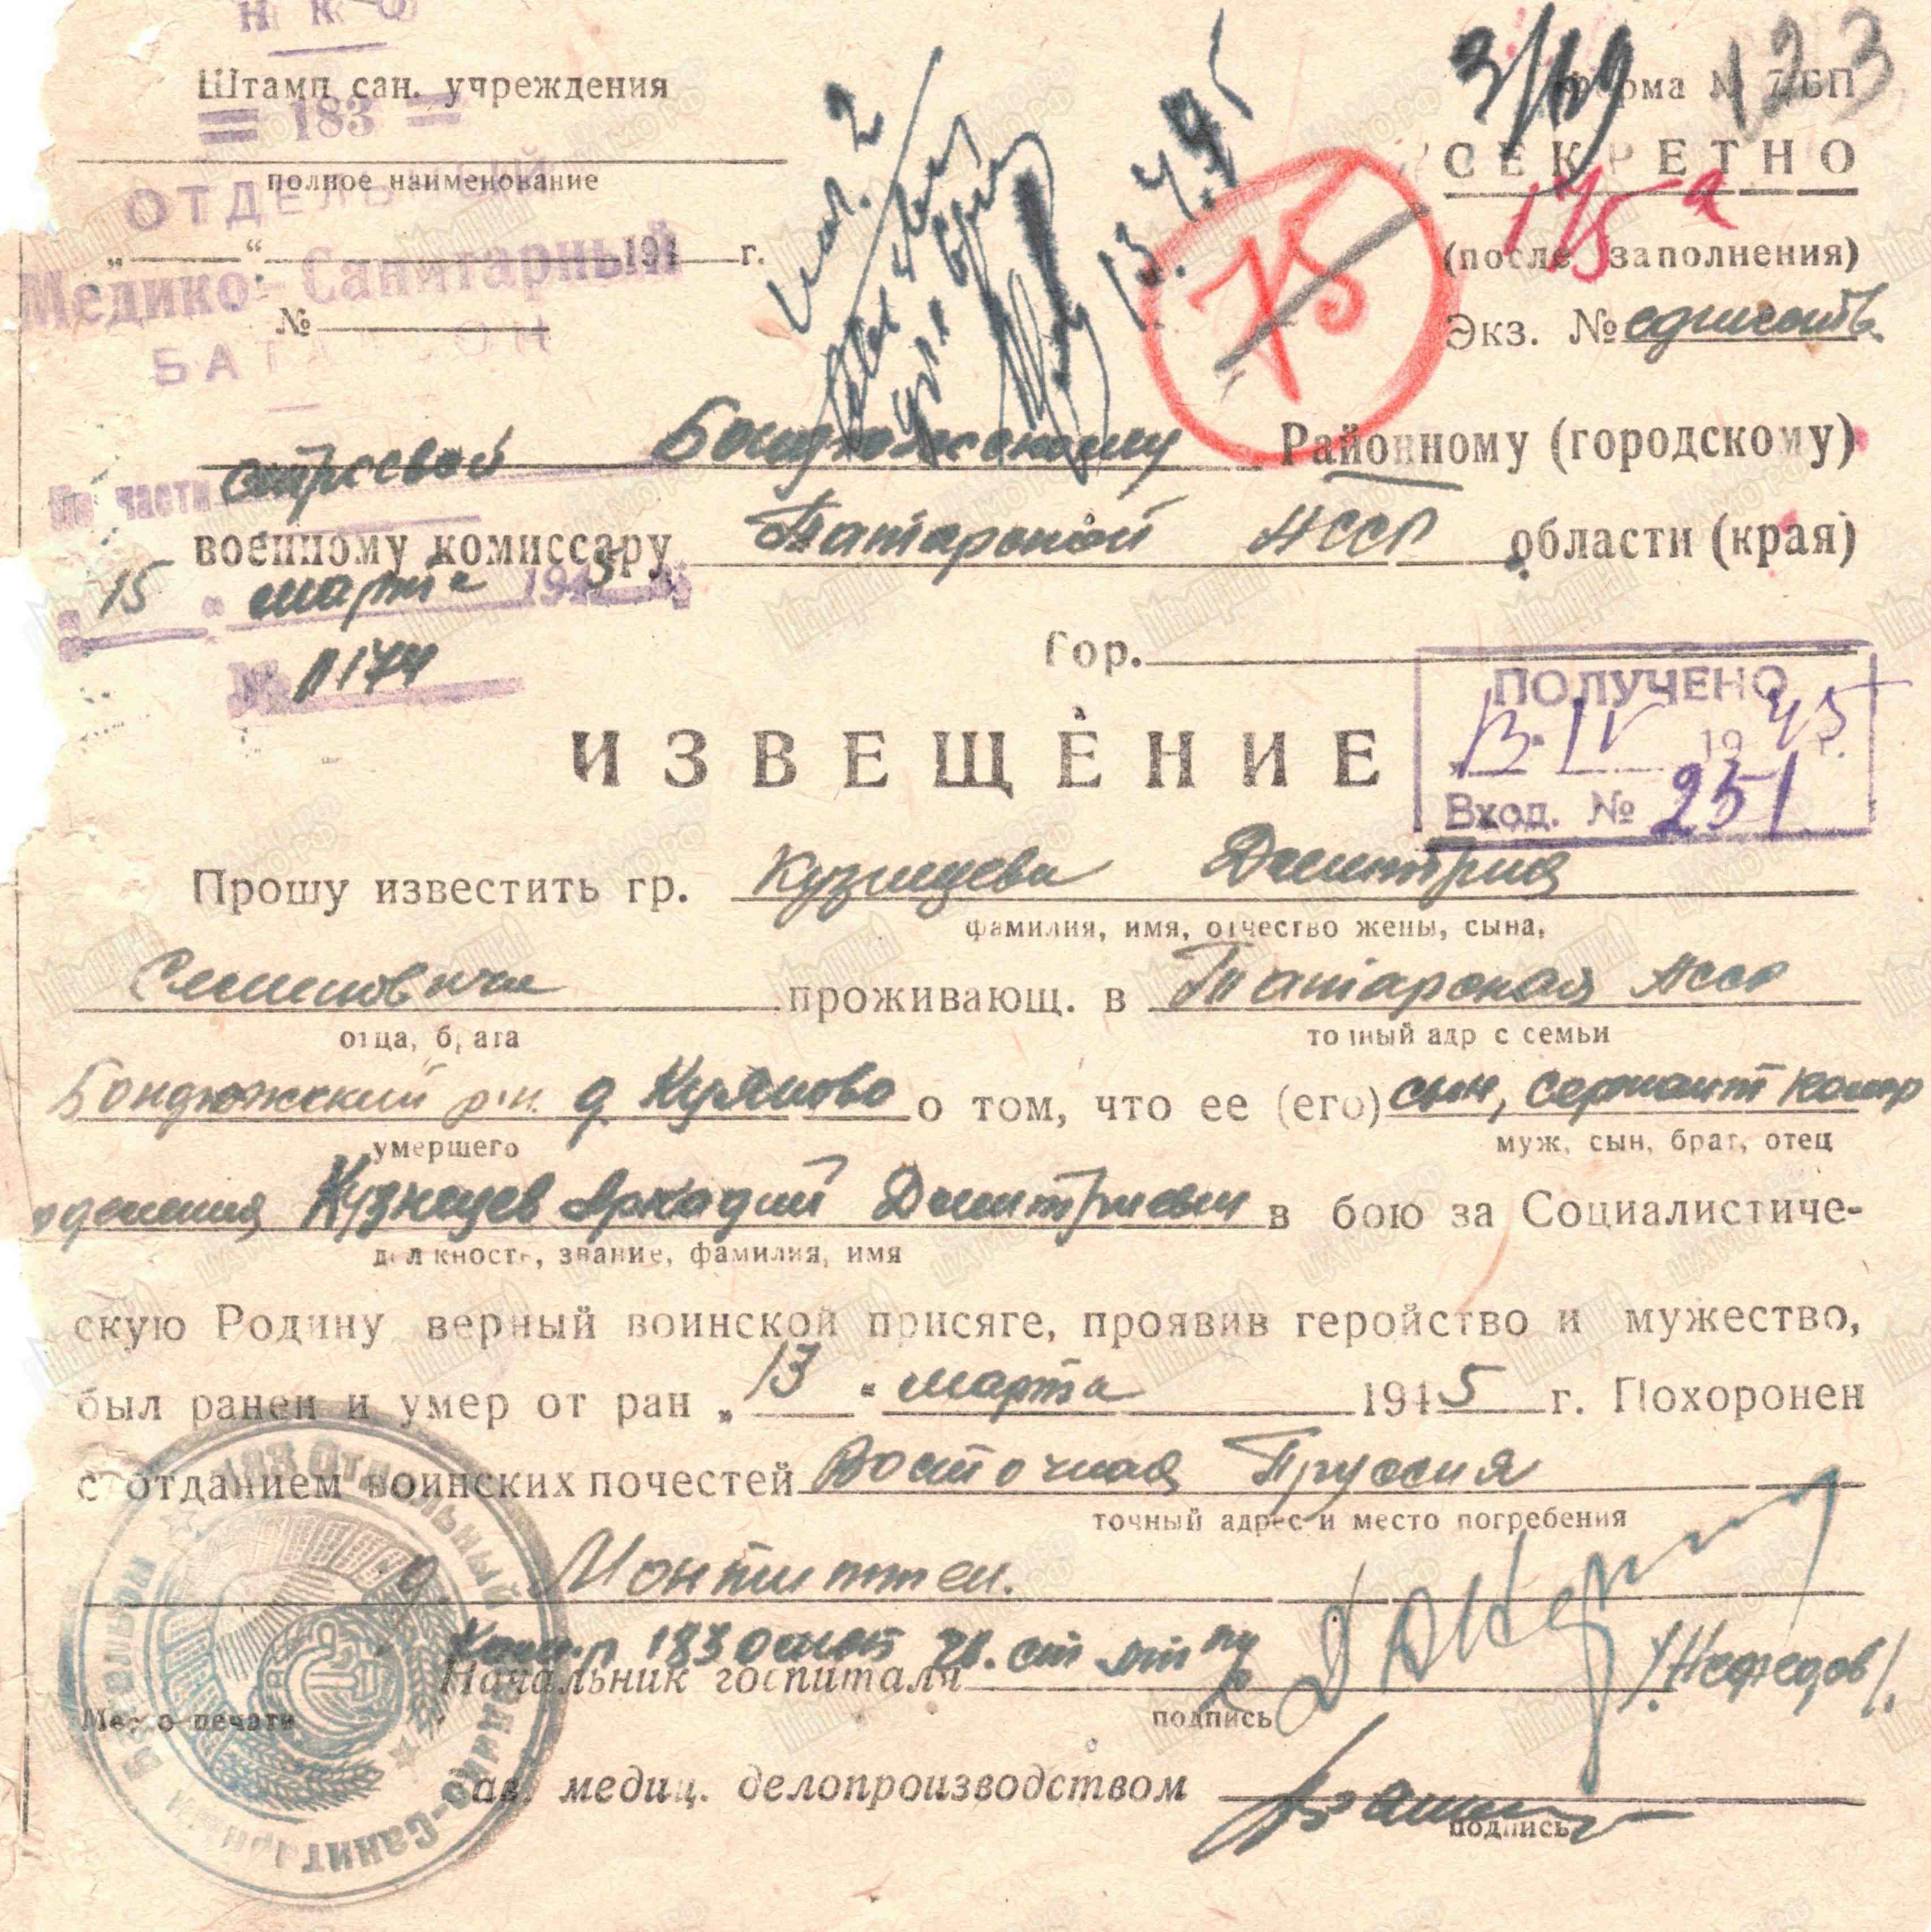 Н К О
Штамп сан. учреждения
183
полное наименование
ОТДЕЛЬНЫЙ
„ “ 194 г.
Медико-Санитарный
№
БАТАЛЬОН
3/19 123
форма № 7/БП
СЕКРЕТНО
175а
(после заполнения)
Экз. № единств.
75
13.4.45
По части строевой
Бондюжскому Районному (городскому)
военному комиссару Татарской АССР области (края)
15 марта 1945
№ 0174
Гор.
ПОЛУЧЕНО
13. IV 1945 г.
Вход. № 251
ИЗВЕЩЕНИЕ
Прошу известить гр. Кузнецева Дмитрия
фамилия, имя, отчество жены, сына,
Семеновича проживающ. в Татарская АССР
отца, брата
точный адрес семьи
Бондюжский р-н д Куяново о том, что ее (его) сын, сержант комр
умершего
муж, сын, брат, отец
отделения Кузнецев Аркадий Дмитриевич в бою за Социалистиче-
должность, звание, фамилия, имя
скую Родину верный воинской присяге, проявив геройство и мужество,
был ранен и умер от ран „13“ марта 1945 г. Похоронен
с отданием воинских почестей Восточная Пруссия
точный адрес и место погребения
д. Монтиттен.
183 Отдельный Медико-Санитарный Батальон
Начальник госпиталя
/Нефедов/.
Место печати
подпись
Зав. медиц. делопроизводством
подпись